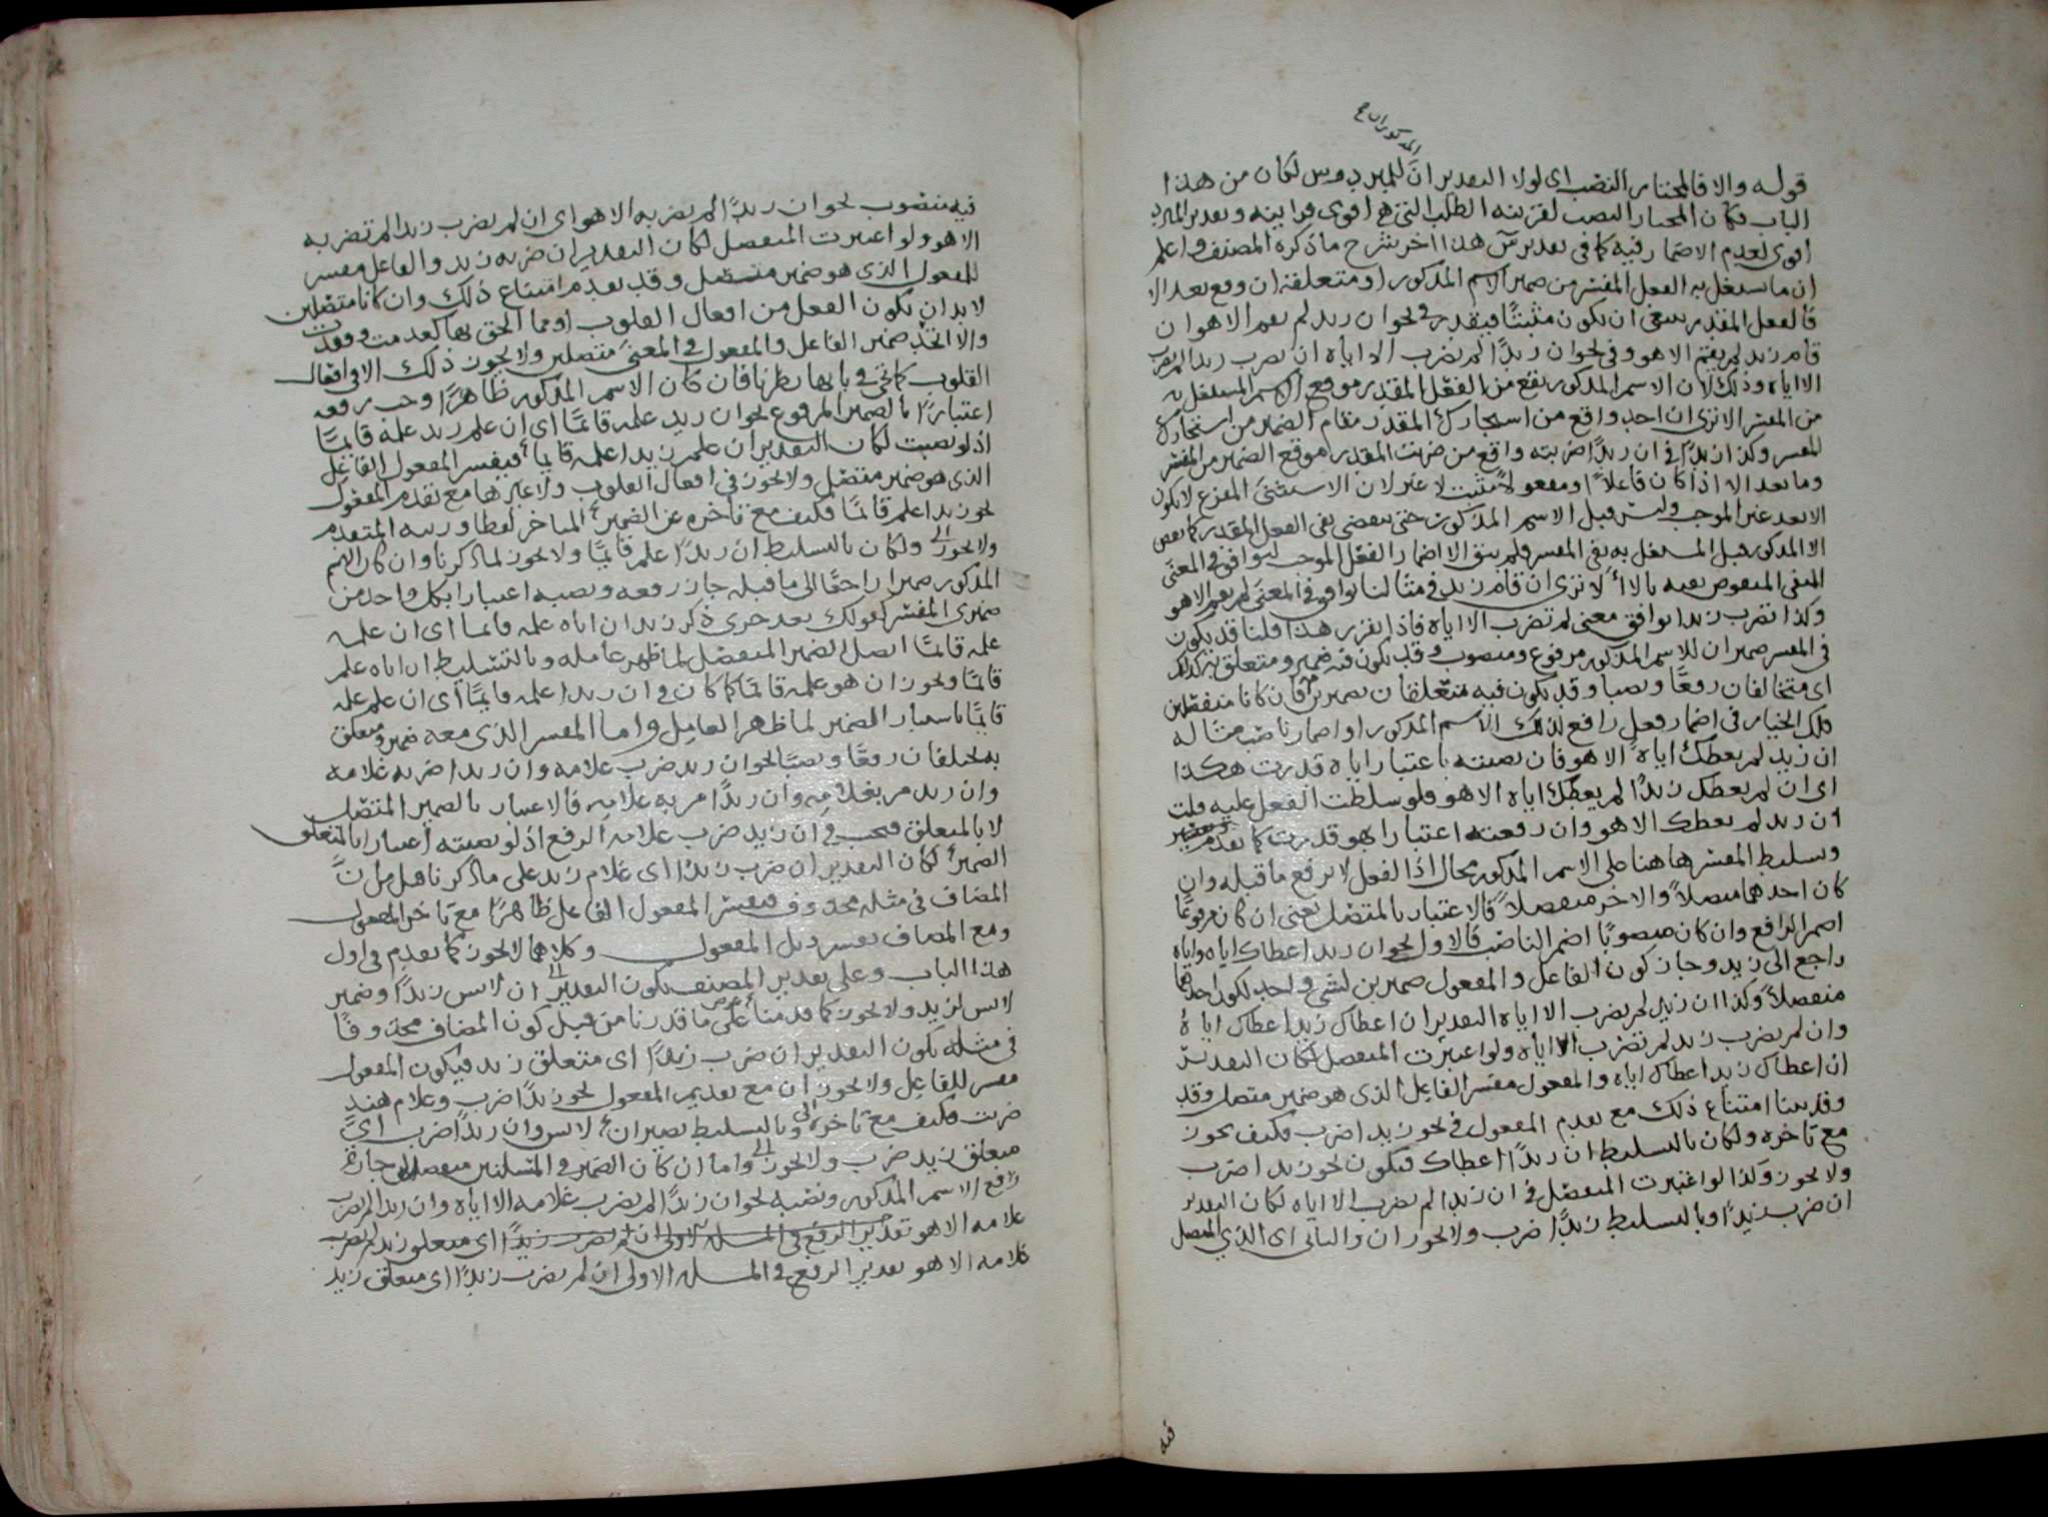 المذكوران صح
قوله والا فالمختار النصب اى لولا التقدير ان للمبرد وس لكان من هذا
الباب فكان المختار النصب لقرينة الطلب التى هى اقوى قرابينه وتقدير المبرد
اقوى لعدم الاضمار فيه كما فى تقدير س هذا اخر شرح ما ذكره المصنف واعلم
ان ما يشتغل به الفعل المفسر من ضمير الاسم المذكور او متعلقه ان وقع بعد الا
فالفعل المقدر ينبغى ان يكون مثبتًا فيقدر فى نحو ان زيد لم يقم الا هو ان
قام زيد لم يقم الا هو وفى نحو ان زيدًا لم تضرب الا اياه ان تضرب زيدا لم تضرب
الا اياه وذلك لان الاسم المذكور يقع من الفعل المقدر موقع الاسم المشتغل به
من المفسر الا ترى ان احد واقع من استجارك المقدر مقام الضمير من استجارك
المفسر وكذا زيدًا فى ان زيدًا ضربته واقع من ضربت المقدر موقع الضمير من المفسر
وما بعد الا اذا كان فاعلاً او مفعولاً مثبت لا غير لان الاستثنى المفرغ لا يكون
الا بعد غير الموجب وليس قبل الاسم المذكور حتى ينقض نفى الفعل المقدر كما نقض
الا المذكور قبل المشتغل به نفى المفسر فلم يبق الا اضمار الفعل الموجب ليوافق فى المعنى
المنفى المنقوض نفيه بالا ألا ترى ان قام زيد فى مثالنا يوافق فى المعنى لم يقم الا هو
وكذا تضرب زيدا يوافق معنى لم تضرب الا اياه فاذا تقرر هذا قلنا قد يكون
فى المفسر ضميران للاسم المذكور مرفوع ومنصوب وقد يكون فيه ضمير ومتعلق به كذلك
اى متخالفان رفعًا ونصبا وقد يكون فيه متعلقان بضميرين فان كانا منفصلين
فلك الخيار فى اضمار فعلٍ رافع لذلك الاسم المذكور او اضمار ناصب مثاله
ان زيد لم يعطك اياه الا هو فان نصبته باعتبار اياه قدرت هكذا
اى ان لم يعطك زيدًا لم يعطك اياه الا هو فلو سلطت الفعل عليه قلت
ان زيد لم يعطك الا هو وان رفعته اعتبارا بهو قدرت كما تقدم
وتسليط المفسر هاهنا على الاسم المذكور محال اذا الفعل لا يرفع ما قبله وان
كان احدهما متصلاً والاخر منفصلاً فالاعتبار بالمتصل يعنى ان كان مرفوعًا
اضمر الرافع وان كان منصوبًا اضمر الناصب فالاول نحو ان زيد اعطاك اياه واياه
راجع الى زيد وجاز كون الفاعل والمفعول ضميرين لشى واحد لكون احدهما
منفصلاً وكذا ان زيد لم يضرب الا اياه التقدير ان اعطاك زيد اعطاك اياه
وان لم يضرب زيد لم يضرب الا اياه ولو اعتبرت المنفصل لكان التقدير
ان اعطاك زيدا اعطاك اياه والمفعول مفسر الفاعل الذى هو ضمير متصل وقد
وقد بينا امتناع ذلك مع تقدم المفعول فى نحو زيدا ضرب فكيف يجوز
مع تاخره ولكان بالتسليط ان زيدًا اعطاك فيكون نحو زيدا ضرب
ولا يجوز وكذا لو اعتبرت المنفصل فى ان زيدا لم يضرب الا اياه لكان التقدير
ان ضرب زيدًا وبالتسليط زيدًا ضرب ولا يجوزان والثانى اى الذى المتصل
فيه
فيه منصوب نحو ان زيدًا لم يضربه الا هو اى ان لم يضرب زيدا لم تضربه
الا هو ولو اعتبرت المنفصل لكان التقدير ان ضربه زيد والفاعل مفسر
للمفعول الذى هو ضمير متصل وقد تقدم امتناع ذلك وان كانا متصلين
لابد ان يكون الفعل من افعال القلوب او مما الحق بها كعدمت وفقدت
والا اتحد ضمير الفاعل والمفعول فى المعنى متصلين ولا يجوز ذلك الا فى افعال
القلوب كما يجى فى بابها نظرنا فان كان الاسم المذكور ظاهرًا وجب رفعه
اعتبارًا بالضمير المرفوع نحو ان زيد علمه قائمًا اى ان علم زيد علمه قائمًا
اذ لو نصبت لكان التقدير ان علم زيدا علمه قائماً فيفسر المفعول الفاعل
الذى هو ضمير متصل ولا يجوز فى افعال القلوب ولا غيرها مع تقدم المفعول
نحو زيدا علم قائمًا فكيف مع تاخره عن الضمير المتاخر لفظا ورتبه المتقدم
ولا يجوز ولكان بالتسليط ان زيدًا علم قائمًا ولا يجوز لما ذكرنا وان كان الاسم
المذكور ضميرا راجعًا الى ما قبله جاز رفعه ونصبه اعتبارا بكل واحد من
ضميرى المفسر كقولك بعد جرى ذكر زيد ان اياه علمه قائما اى ان علمه
علمه قائمًا اتصل الضمير المنفصل لما ظهر عامله وبالتسليط ان اياه علم
قائمًا ونحو ان هو علمه قائمًا كما كان فى ان زيد علمه قائمًا اى ان علم علمه
قائمًا باستتار الضمير لما ظهر العامل واما المفسر الذى معه ضمير ومتعلق
به مختلفان رفعًا ونصبًا نحو ان زيد ضرب غلامه وان زيدا ضربه غلامه
وان زيد مر بغلامه وان زيدًا مر به غلامه فالاعتبار بالضمير المتصل
لا بالمتعلق فيجب فى ان زيد ضرب غلامه الرفع اذ لو نصبته اعتبارا بالمتعلق
الضمير لكان التقدير ان ضرب زيدًا اى غلام زيد على ما ذكرنا قبل من ان
المضاف فى مثله محذوف فيفسر المفعول الفاعل ظاهرًا مع تاخر المفعول
ومع المضاف يفسر ذيل المفعول وكلاهما لا يجوز كما تقدم فى اول
هذا الباب وعلى تقدير المصنف يكون التقدير ان لابس زيدًا وضمير
لابس لزيد ولا يجوز كما قدمنا على ما قدرنا من قبل كون المضاف محذوفًا
فى مثله يكون التقدير ان ضرب زيدًا اى متعلق زيد فيكون المفعول
مفسر للفاعل ولا يجوز ان مع تقديم المفعول نحو زيدًا ضرب وغلام هند
ضربت فكيف مع تاخره وبالتسليط يصير ان لابس وان زيدًا ضرب اى
متعلق زيد ضرب ولا يجوز واما ان كان الضمير فى المسئلتين منفصلا جاز
رافع الاسم المذكور ونصبه نحو ان زيدًا لم يضرب غلامه الا اياه وان زيدا لم يضرب
غلامه الا هو تقدير الرفع فى المسئلة الاولى ان لم يضرب زيدًا اى متعلق زيد لم يضرب
غلامه الا هو تقدير الرفع فى المسئلة الاولى ان لم يضرب زيدًا اى متعلق زيد